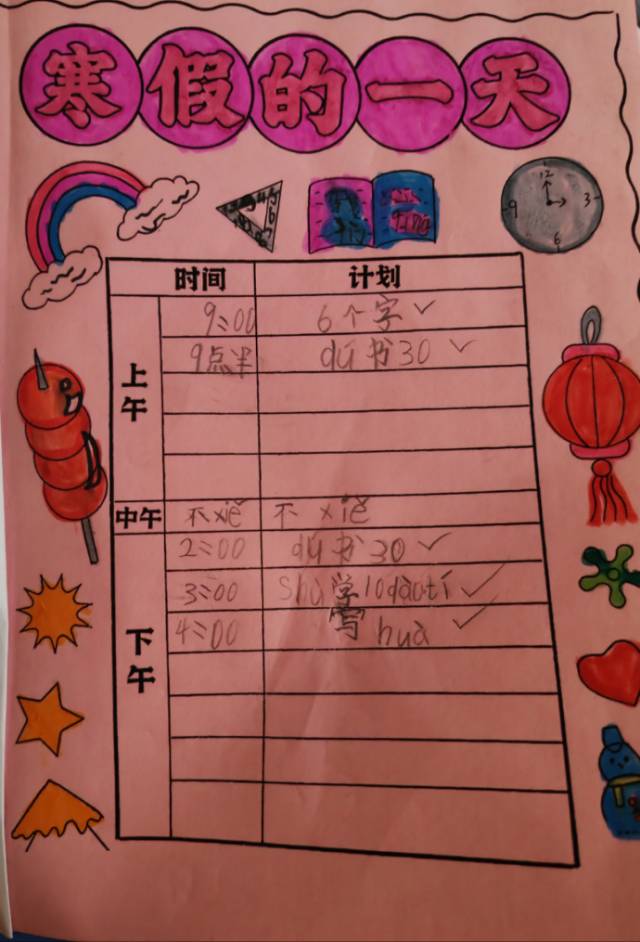 寒假的一天
12
9 3
6
时间 计划
上午
9:00 6个字✓
9点半 dú书30✓
中午 不xiě 不xiě
下午
2:00 dú书30✓
3:00 Shù学10dàotí✓
4:00 写huà✓